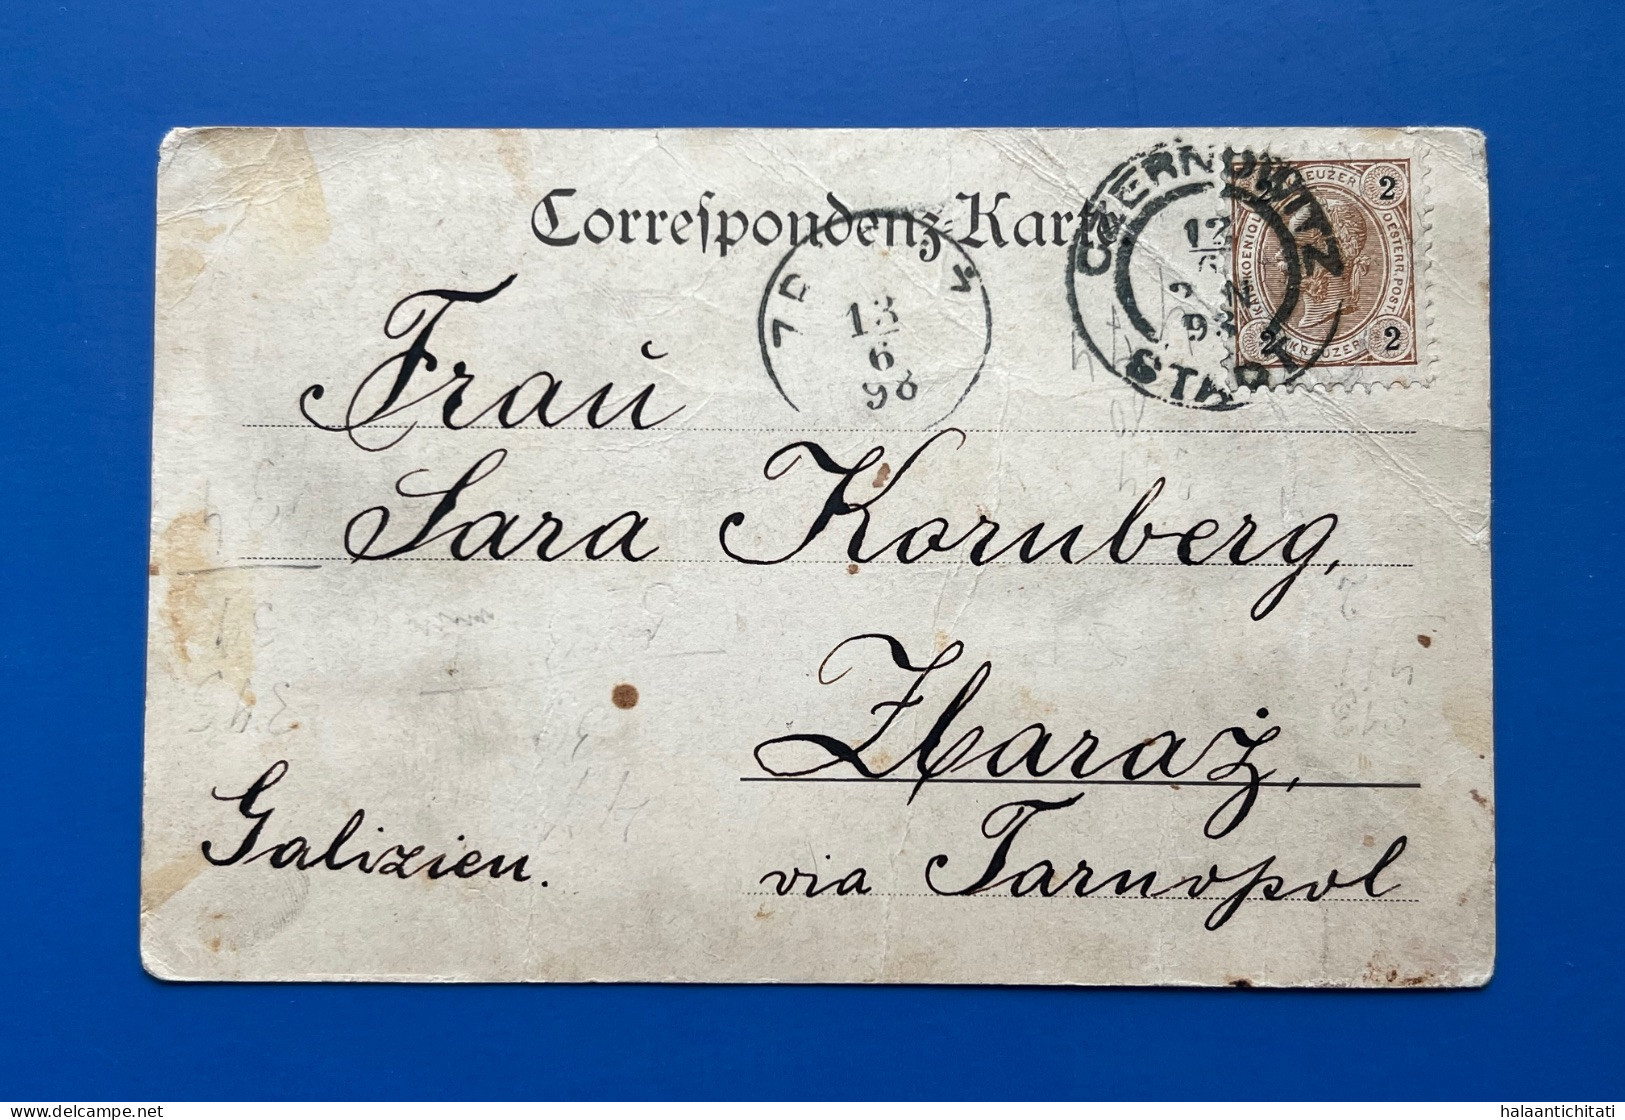 Correſpondenz-Karte
CZERNOWITZ
12
6
98
STADT
2 KREUZER 2
KAIS.KOENIGL. OESTERR.POST
2 KREUZER 2
13
6
98
Frau
Sara Kornberg,
Zbaraż,
Galizien.
via Tarnopol
halaantichitati